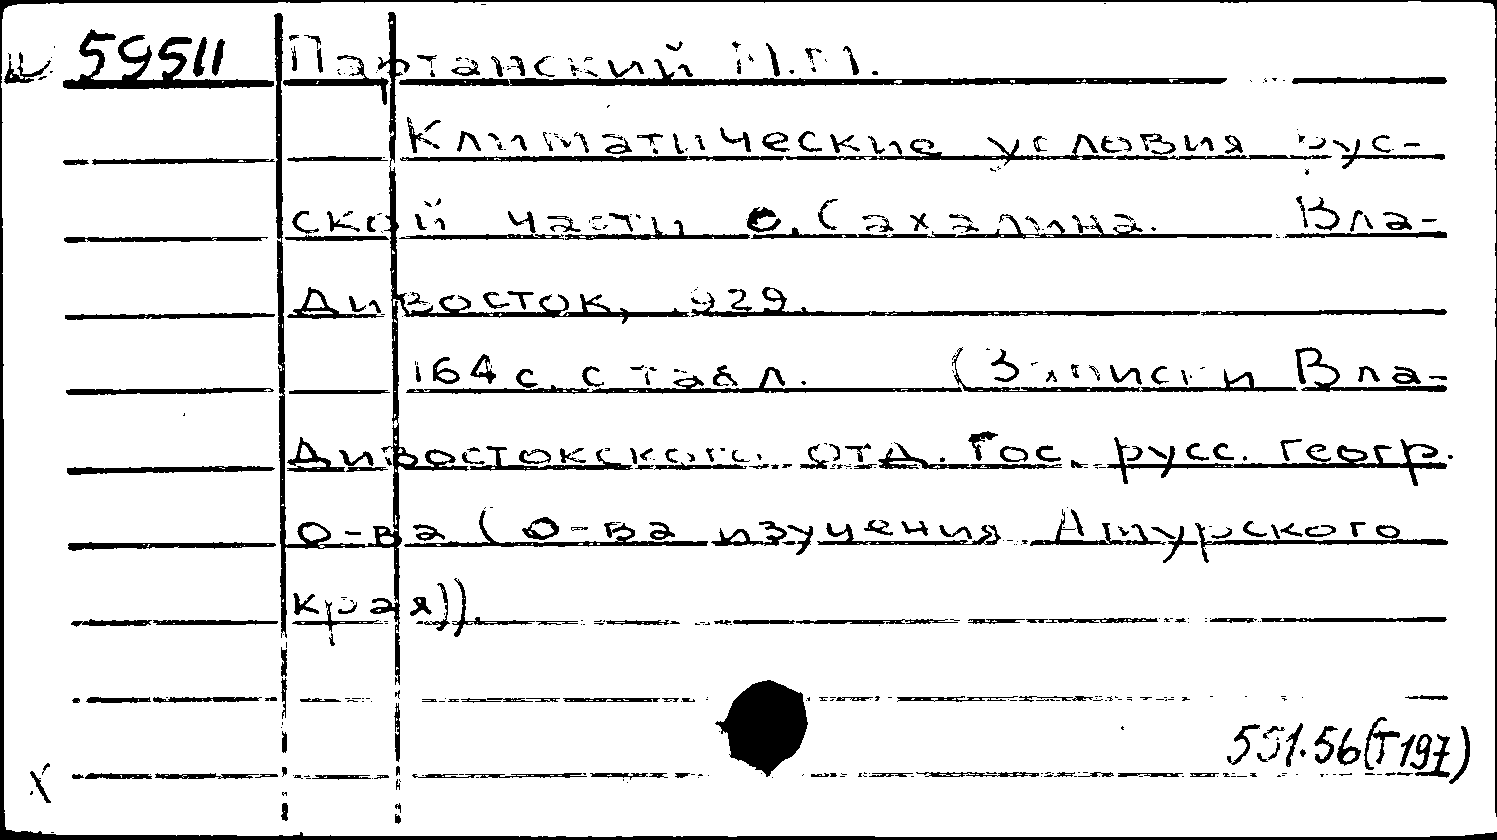 Ш 59511 Партанский М.М.
Климатические условия рус-
ской части о. Сахалина. Вла-
дивосток, 1929.
164 с. с табл. (Записки Вла-
дивостокского отд. Гос. русс. геогр.
о-ва (О-ва изучения Амурского
края)).
551.56(Т197)
X